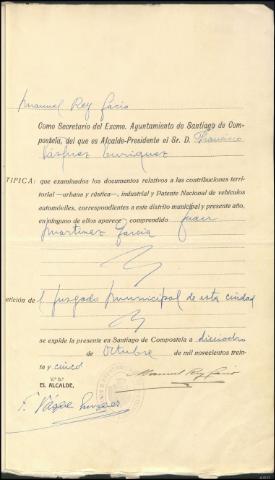 Manuel Rey Gacio
Como Secretario del Excmo. Ayuntamiento de Santiago de Com-
postela, del que es Alcalde-Presidente el Sr. D. Francisco
Vázquez Enríquez
TIFICA: que examinados los documentos relativos a las contribuciones terri-
torial —urbana y rústica—, industrial y Patente Nacional de vehículos
automóviles, correspondientes a este distrito municipal y presente año,
en ninguno de ellos aparece comprendido Juan
Martinez Garcia
etición de el Juzgado municipal de esta ciudad
se expide la presente en Santiago de Compostela a dieciocho
de Octubre de mil novecientos trein-
ta y cinco
V.º B.º
EL ALCALDE,
Manuel Rey Gacio
F. Vázquez